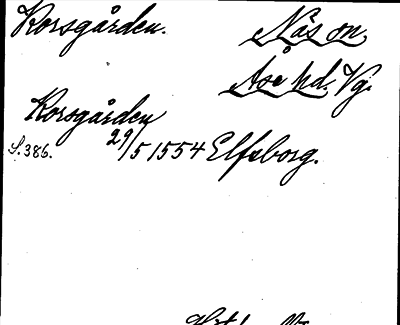 Korsgården. Näs sn,
Åse hd. Vg.
Korsgården
S. 386. 29/5 1554 Elfsborg.